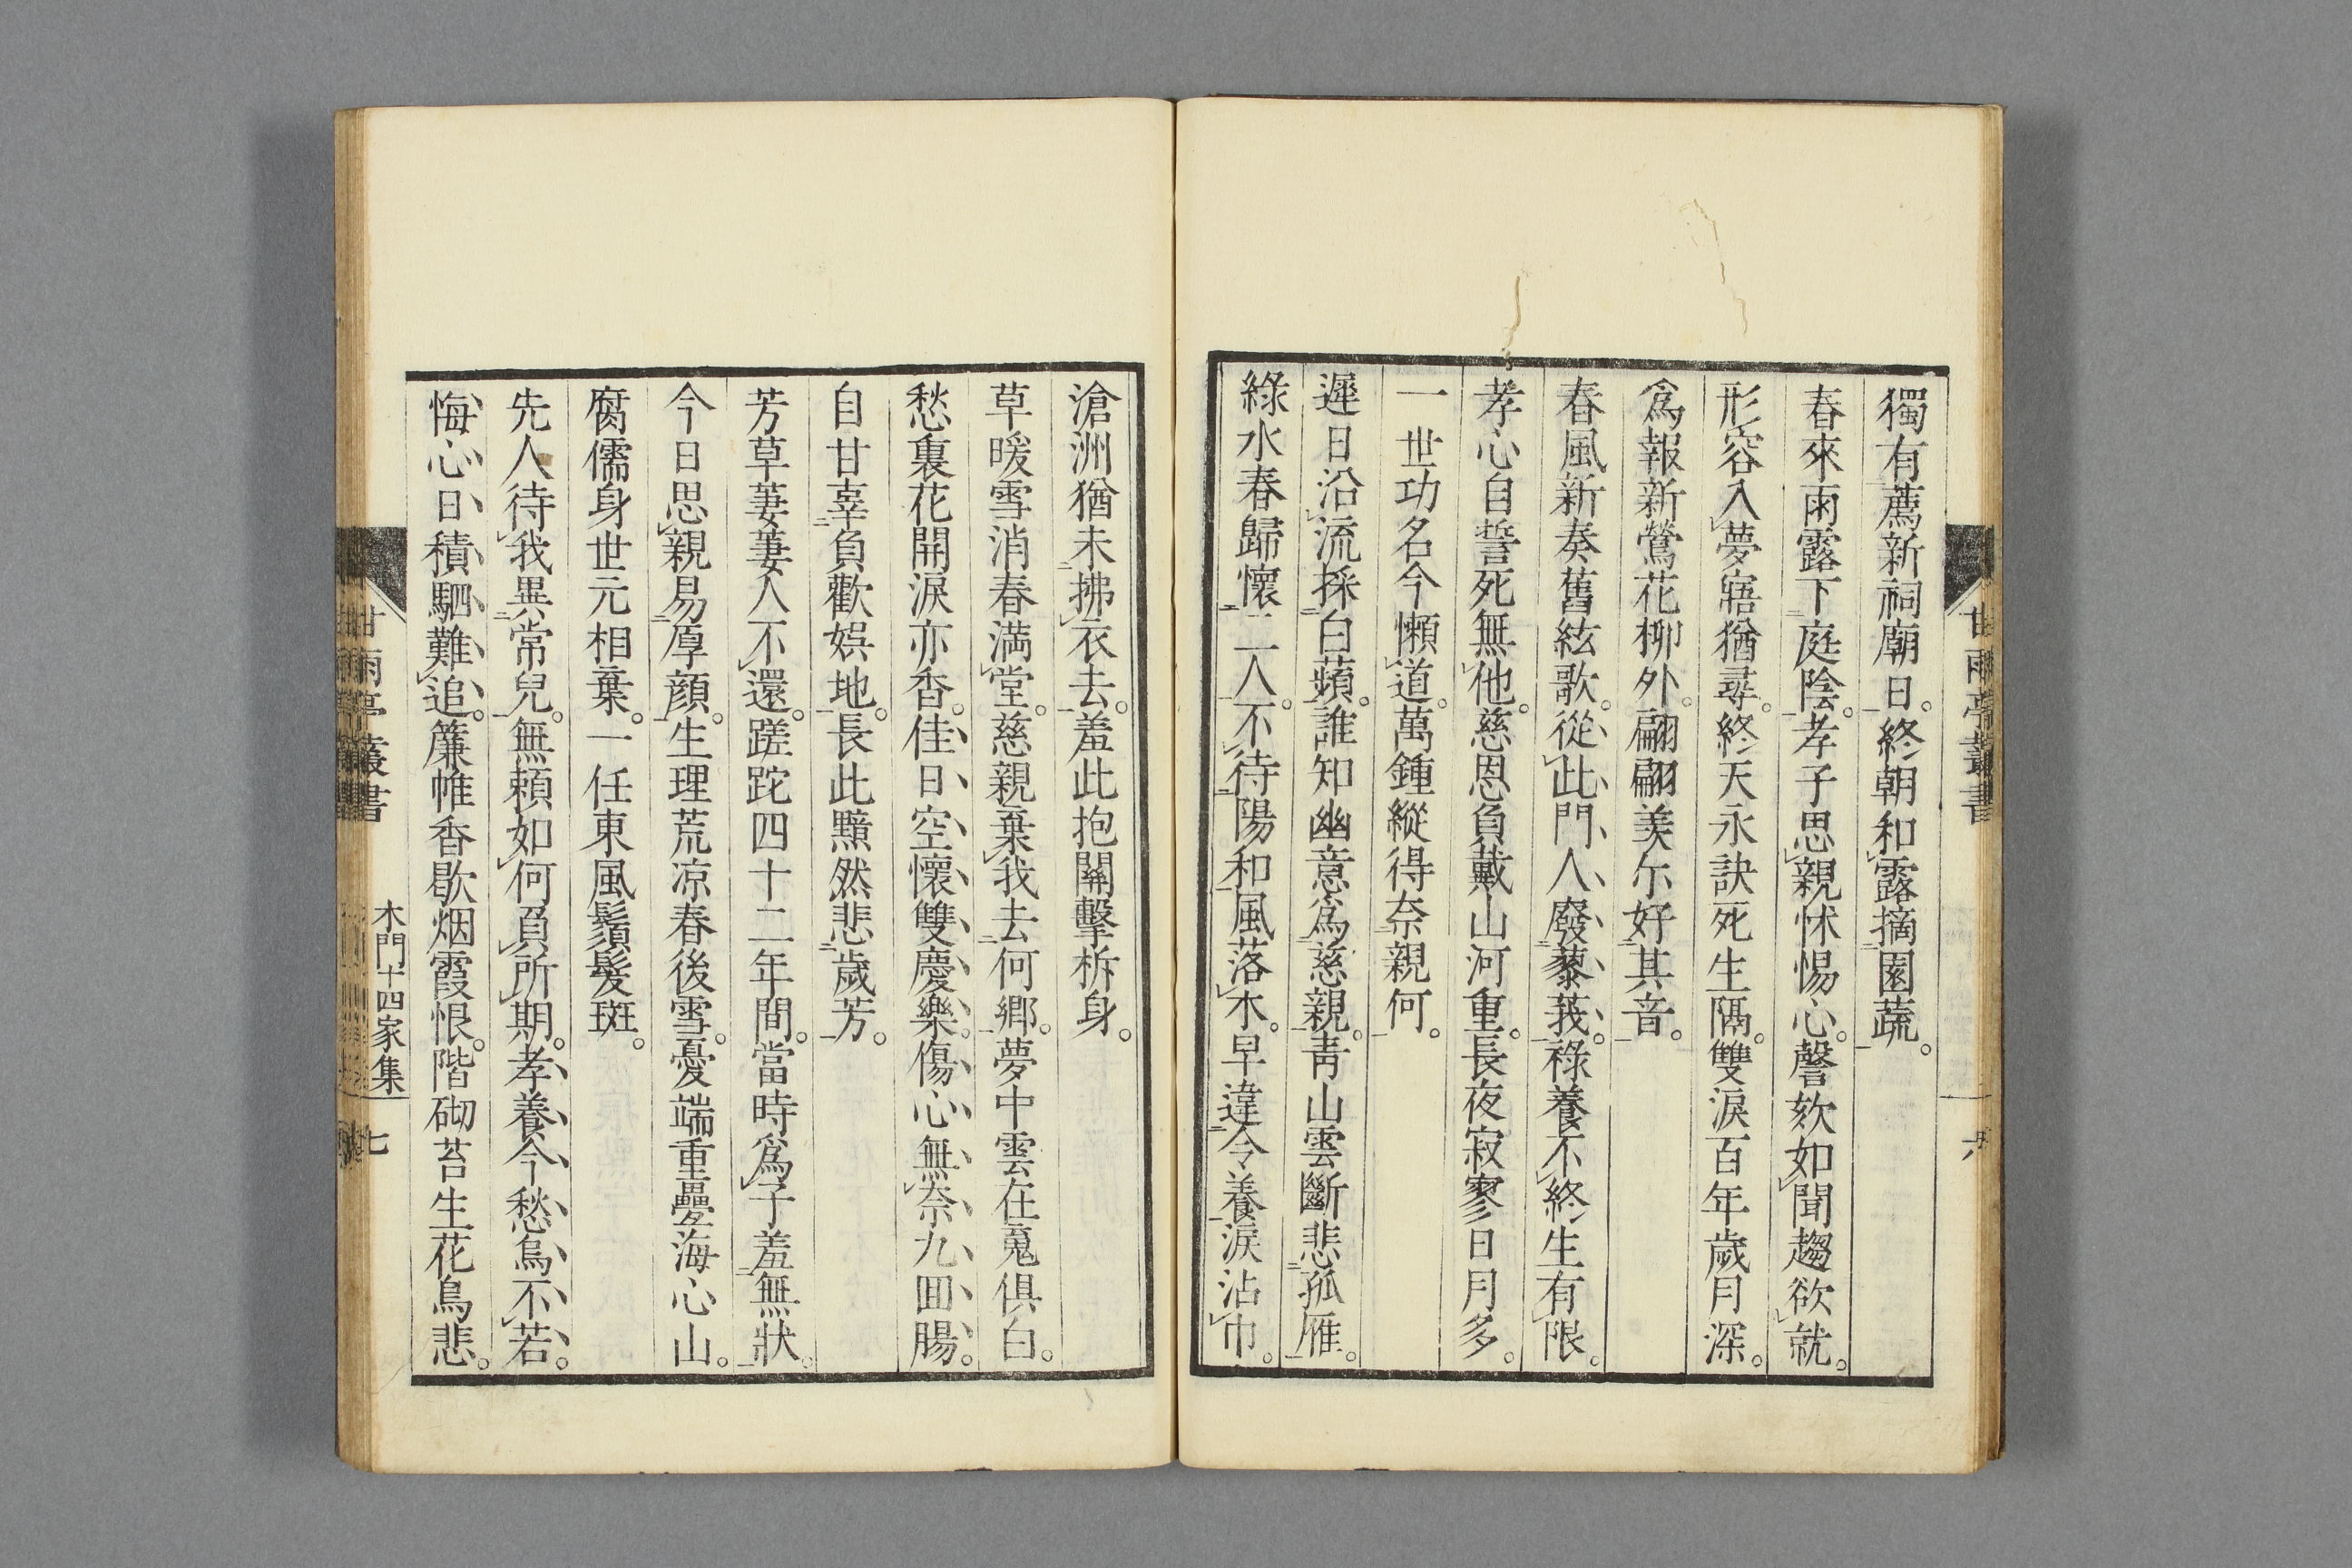 獨有薦新祠廟日。終朝和露摘園蔬。
春來雨露下庭陰。孝子思親怵惕心。謦欬如聞趨欲就。
形容入夢寤猶尋。終天永訣死生隔。雙淚百年歲月深。
爲報新鶯花柳外。翩翩羨尓好其音。
春風新奏舊絃歌。從此門人廢蓼莪。祿養不終生有限。
孝心自誓死無他。慈恩負戴山河重。長夜寂寥日月多。
一世功名今懶道。萬鍾縱得奈親何。
遲日沿流採白蘋。誰知幽意爲慈親。青山雲斷悲孤雁。
綠水春歸懷二人。不待陽和風落木。早違令養淚沾巾。
甘雨亭叢書
六
滄洲猶未拂衣去。羞此抱關擊柝身。
草暖雪消春滿堂。慈親棄我去何鄉。夢中雲在䰟俱白。
愁裏花開淚亦香。佳日空懷雙慶樂。傷心無奈九回腸。
自甘辜負歡娯地。長此黯然悲歲芳。
芳草萋萋人不還。蹉跎四十二年間。當時爲子羞無狀。
今日思親易厚顔。生理荒凉春後雪。憂端重疊海心山。
腐儒身世元相棄。一任東風鬚髮斑。
先人待我異常兒。無賴如何負所期。孝養今愁烏不若。
悔心日積駟難追。簾帷香歇烟霞恨。階砌苔生花鳥悲。
甘雨亭叢書
木門十四家集
七